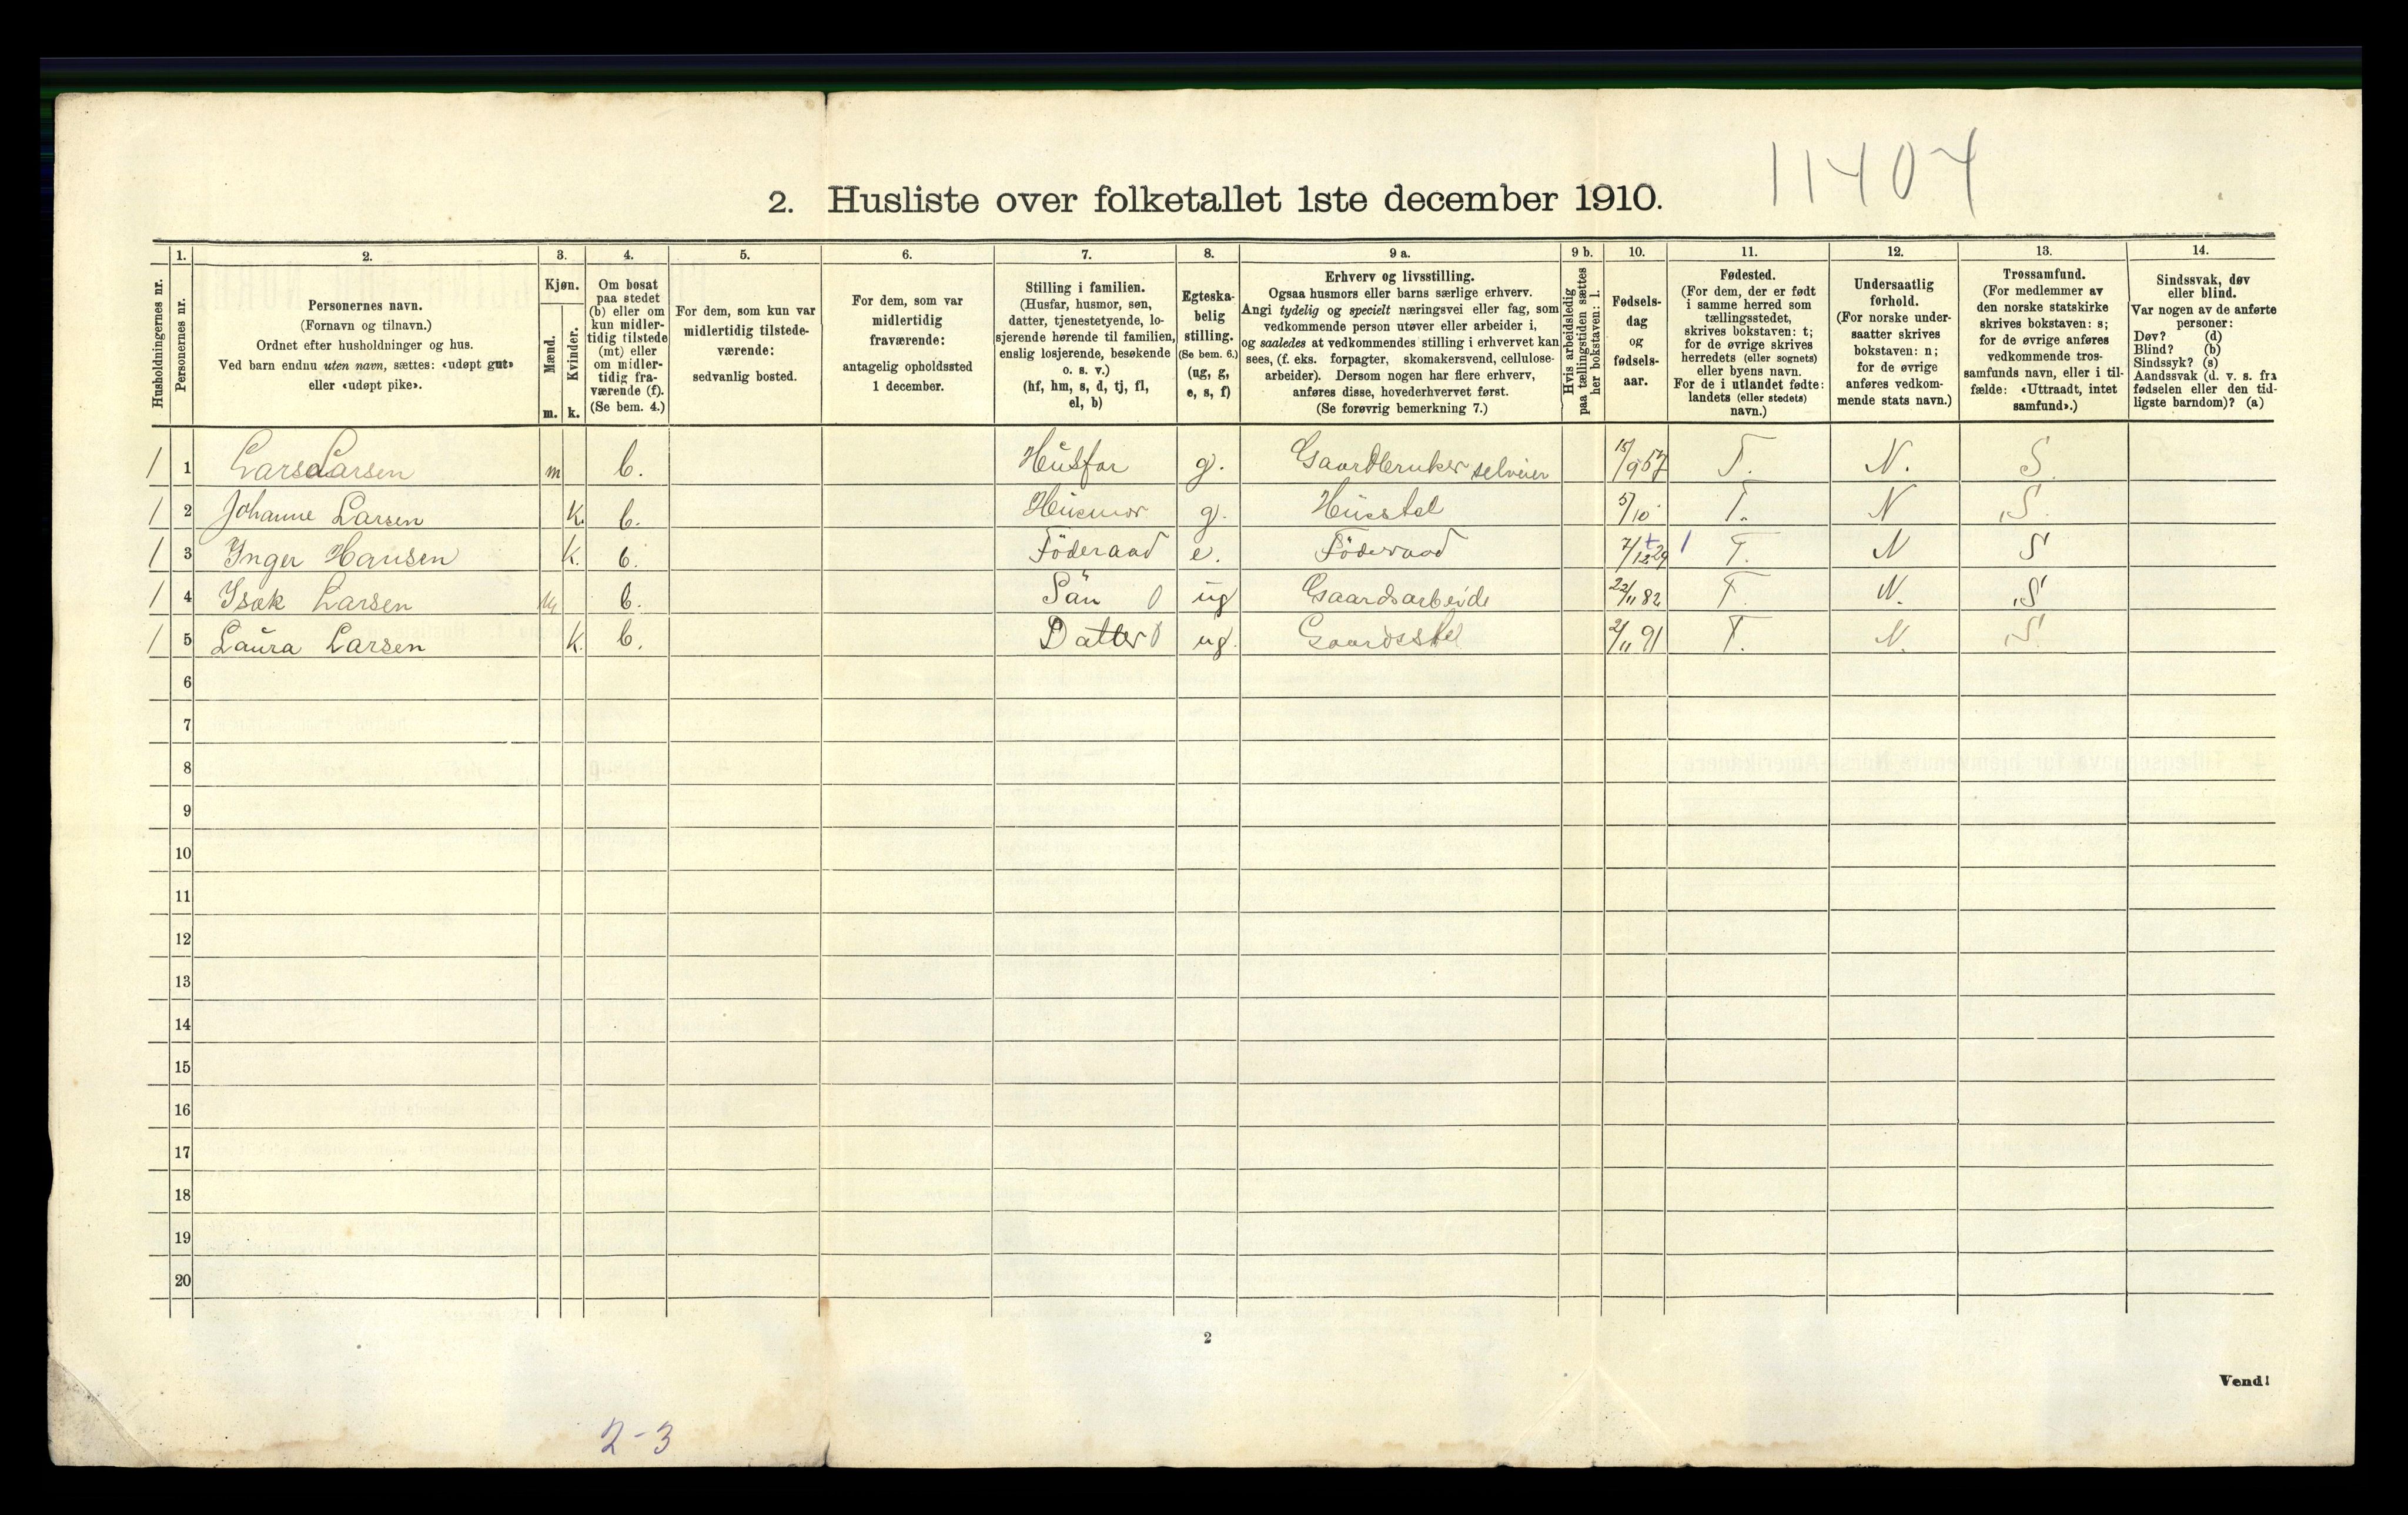 11404
2. Husliste over folketallet 1ste december 1910.
1. 2. 3. 4. 5. 6. 7. 8. 9 a. 9 b. 10. 11. 12. 13. 14.
Husholdningernes nr.
Personernes nr.
Personernes navn.
(Fornavn og tilnavn.)
Ordnet efter husholdninger og hus.
Ved barn endnu uten navn, sættes: «udøpt gut»
eller «udøpt pike».
Kjøn.
Mænd.
Kvinder.
m. k.
Om bosat
paa stedet
(b) eller om
kun midler-
tidig tilstede
(mt) eller
om midler-
tidig fra-
værende (f).
(Se bem. 4.)
For dem, som kun var
midlertidig tilstede-
værende:
sedvanlig bosted.
For dem, som var
midlertidig
fraværende:
antagelig opholdssted
1 december.
Stilling i familien.
(Husfar, husmor, søn,
datter, tjenestetyende, lo-
sjerende hørende til familien,
enslig losjerende, besøkende
o. s. v.)
(hf, hm, s, d, tj, fl,
el, b)
Egteska-
belig
stilling.
(Se bem. 6.)
(ug, g,
e, s, f)
Erhverv og livsstilling.
Ogsaa husmors eller barns særlige erhverv.
Angi tydelig og specielt næringsvei eller fag, som
vedkommende person utøver eller arbeider i,
og saaledes at vedkommendes stilling i erhvervet kan
sees, (f. eks. forpagter, skomakersvend, cellulose-
arbeider). Dersom nogen har flere erhverv,
anføres disse, hovederhvervet først.
(Se forøvrig bemerkning 7.)
Hvis arbeidsledig
paa tællingstiden sættes
her bokstaven: l.
Fødsels-
dag
og
fødsels-
aar.
Fødested.
(For dem, der er født
i samme herred som
tællingsstedet,
skrives bokstaven: t;
for de øvrige skrives
herredets (eller sognets)
eller byens navn.
For de i utlandet fødte:
landets (eller stedets)
navn.)
Undersaatlig
forhold.
(For norske under-
saatter skrives
bokstaven: n;
for de øvrige
anføres vedkom-
mende stats navn.)
Trossamfund.
(For medlemmer av
den norske statskirke
skrives bokstaven: s;
for de øvrige anføres
vedkommende tros-
samfunds navn, eller i til-
fælde: «Uttraadt, intet
samfund».)
Sindssvak, døv
eller blind.
Var nogen av de anførte
personer:
Døv? (d)
Blind? (b)
Sindssyk? (s)
Aandssvak (d. v. s. fra
fødselen eller den tid-
ligste barndom)? (a)
1 1 Lars Larsen m b. Husfar g. Gaardbruker selveier 15/9 57 T. N. S
1 2 Johanne Larsen K. b. Husmor g. Husstel 5/10 T. N S.
1 3 Inger Hansen K. b. Föderaad e. Föderaad 7/12 29 T. N S
1 4 Isak Larsen b. Sön 0 ug Gaardsarbeide 22/11 82 T. N. S
1 5 Laura Larsen K. b. Datter 0 ug. Gaardsstel 2/11 91 T. N. S
6
7
8
9
10
11
12
13
14
15
16
17
18
19
20
2
Vend!
2-3